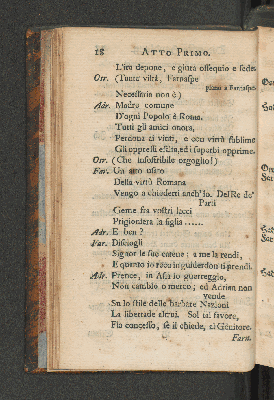 18 ATTO PRIMO.
L'ira depone, e giura ossequio e fede.
Osr. (Tanta viltà, Farnaspe
piano a Farnaspe.
Necessaria non è)
Adr. Madre comune
D'ogni Popolo è Roma.
Tutti gli amici onora,
Perdona ai vinti, e con virtù sublime
Gli oppressi esalta, ed i superbi opprime.
Osr. (Che insoffribile orgoglio!)
Far. Un atto usato
Della virtù Romana
Vengo a chiederti anch'io. Del Re de'
Parti
Geme fra vostri lacci
Prigioniera la figlia ......
Adr. E ben?
Far. Disciogli
Signor le sue catene: a me la rendi,
E quanto io reco in guiderdon ti prendi.
Adr. Prence, in Asia io guerreggio,
Non cambio o merco; ed Adrian non
vende
Su lo stile delle barbare Nazioni
La libertade altrui. Sol tal favore,
Fia concesso, se il chiede, al Genitore.
Farn.